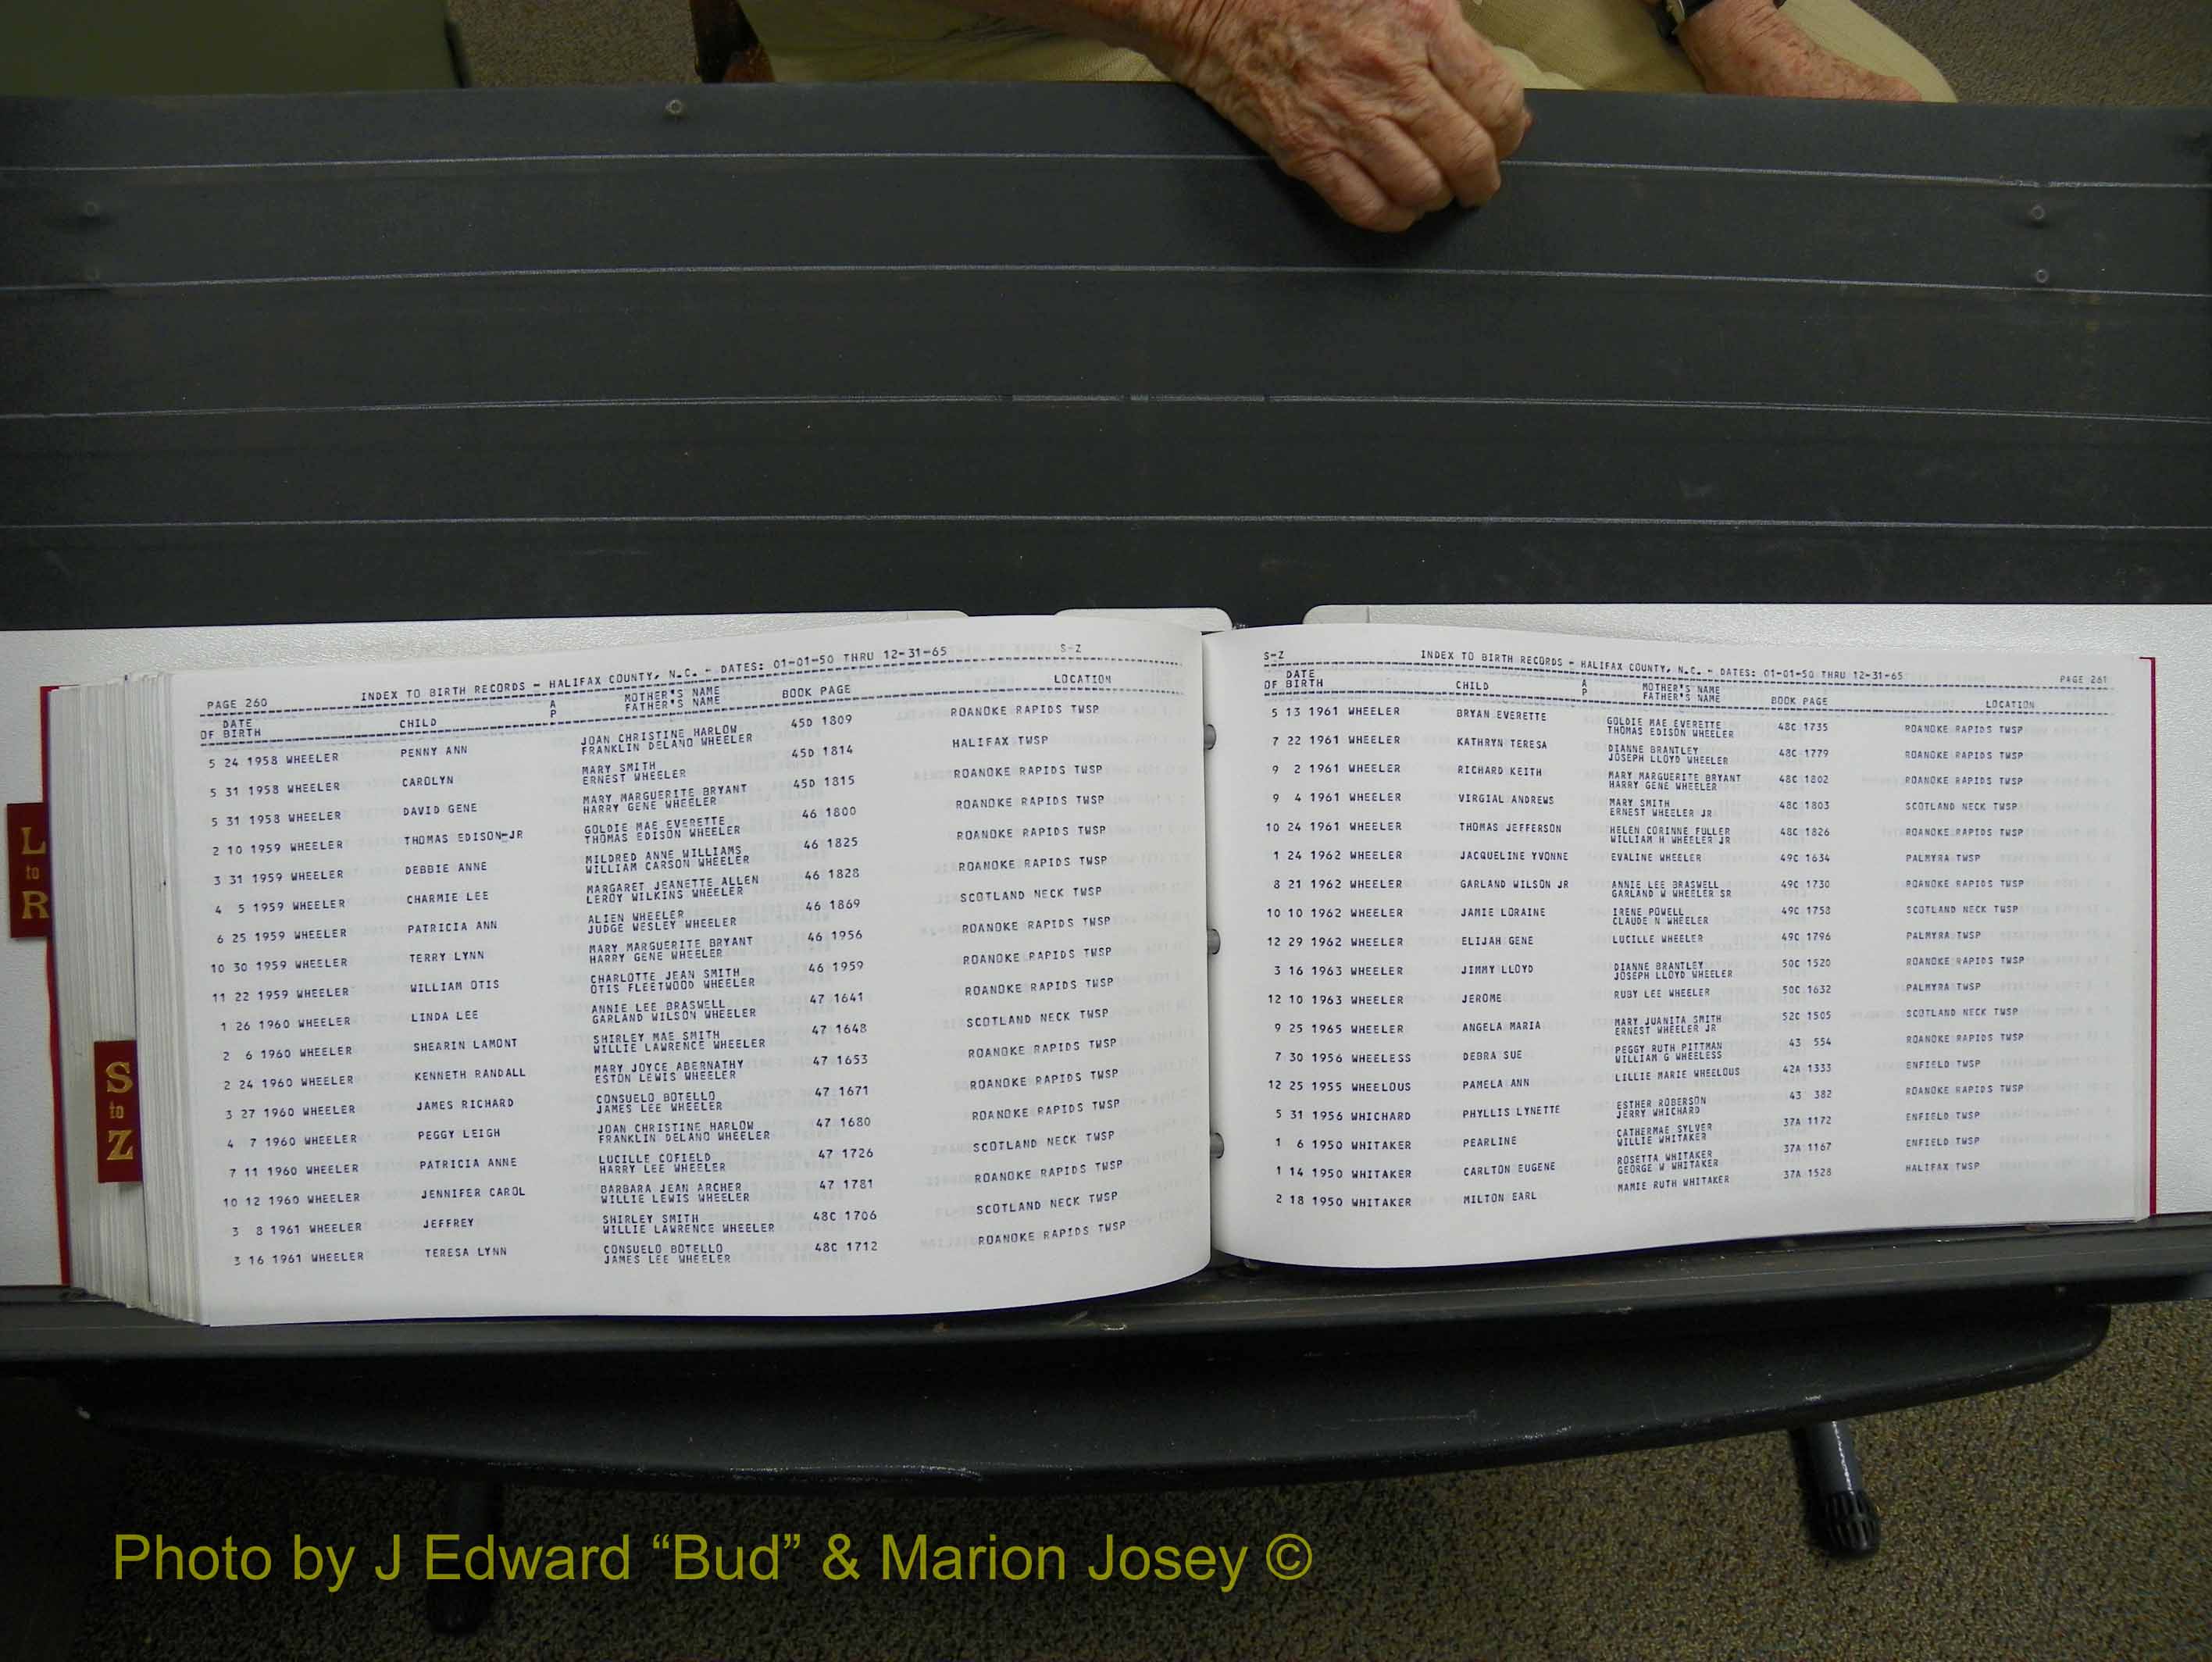 PAGE 260 INDEX TO BIRTH RECORDS - HALIFAX COUNTY, N.C. - DATES: 01-01-50 THRU 12-31-65 S-Z
DATE OF BIRTH CHILD AP MOTHER'S NAME FATHER'S NAME BOOK PAGE LOCATION
5 24 1958 WHEELER PENNY ANN JOAN CHRISTINE HARLOW 45D 1809 ROANOKE RAPIDS TWSP
FRANKLIN DELANO WHEELER
5 31 1958 WHEELER CAROLYN MARY SMITH 45D 1814 HALIFAX TWSP
ERNEST WHEELER
5 31 1958 WHEELER DAVID GENE MARY MARGUERITE BRYANT 45D 1815 ROANOKE RAPIDS TWSP
HARRY GENE WHEELER
2 10 1959 WHEELER THOMAS EDISON-JR GOLDIE MAE EVERETTE 46 1800 ROANOKE RAPIDS TWSP
THOMAS EDISON WHEELER
3 31 1959 WHEELER DEBBIE ANNE MILDRED ANNE WILLIAMS 46 1825 ROANOKE RAPIDS TWSP
WILLIAM CARSON WHEELER
4 5 1959 WHEELER CHARMIE LEE MARGARET JEANETTE ALLEN 46 1828 ROANOKE RAPIDS TWSP
LEROY WILKINS WHEELER
6 25 1959 WHEELER PATRICIA ANN ALIEN WHEELER 46 1869 SCOTLAND NECK TWSP
JUDGE WESLEY WHEELER
10 30 1959 WHEELER TERRY LYNN MARY MARGUERITE BRYANT 46 1956 ROANOKE RAPIDS TWSP
HARRY GENE WHEELER
11 22 1959 WHEELER WILLIAM OTIS CHARLOTTE JEAN SMITH 46 1959 ROANOKE RAPIDS TWSP
OTIS FLEETWOOD WHEELER
1 26 1960 WHEELER LINDA LEE ANNIE LEE BRASWELL 47 1641 ROANOKE RAPIDS TWSP
GARLAND WILSON WHEELER
2 6 1960 WHEELER SHEARIN LAMONT SHIRLEY MAE SMITH 47 1648 SCOTLAND NECK TWSP
WILLIE LAWRENCE WHEELER
2 24 1960 WHEELER KENNETH RANDALL MARY JOYCE ABERNATHY 47 1653 ROANOKE RAPIDS TWSP
ESTON LEWIS WHEELER
3 27 1960 WHEELER JAMES RICHARD CONSUELO BOTELLO 47 1671 ROANOKE RAPIDS TWSP
JAMES LEE WHEELER
4 7 1960 WHEELER PEGGY LEIGH JOAN CHRISTINE HARLOW 47 1680 ROANOKE RAPIDS TWSP
FRANKLIN DELANO WHEELER
7 11 1960 WHEELER PATRICIA ANNE LUCILLE COFIELD 47 1726 SCOTLAND NECK TWSP
HARRY LEE WHEELER
10 12 1960 WHEELER JENNIFER CAROL BARBARA JEAN ARCHER 47 1781 ROANOKE RAPIDS TWSP
WILLIE LEWIS WHEELER
3 8 1961 WHEELER JEFFREY SHIRLEY SMITH 48C 1706 SCOTLAND NECK TWSP
WILLIE LAWRENCE WHEELER
3 16 1961 WHEELER TERESA LYNN CONSUELO BOTELLO 48C 1712 ROANOKE RAPIDS TWSP
JAMES LEE WHEELER
S-Z INDEX TO BIRTH RECORDS - HALIFAX COUNTY, N.C. - DATES: 01-01-50 THRU 12-31-65 PAGE 261
DATE OF BIRTH CHILD AP MOTHER'S NAME FATHER'S NAME BOOK PAGE LOCATION
5 13 1961 WHEELER BRYAN EVERETTE GOLDIE MAE EVERETTE 48C 1735 ROANOKE RAPIDS TWSP
THOMAS EDISON WHEELER
7 22 1961 WHEELER KATHRYN TERESA DIANNE BRANTLEY 48C 1779 ROANOKE RAPIDS TWSP
JOSEPH LLOYD WHEELER
9 2 1961 WHEELER RICHARD KEITH MARY MARGUERITE BRYANT 48C 1802 ROANOKE RAPIDS TWSP
HARRY GENE WHEELER
9 4 1961 WHEELER VIRGIAL ANDREWS MARY SMITH 48C 1803 SCOTLAND NECK TWSP
ERNEST WHEELER JR
10 24 1961 WHEELER THOMAS JEFFERSON HELEN CORINNE FULLER 48C 1826 ROANOKE RAPIDS TWSP
WILLIAM H WHEELER JR
1 24 1962 WHEELER JACQUELINE YVONNE EVALINE WHEELER 49C 1634 PALMYRA TWSP
8 21 1962 WHEELER GARLAND WILSON JR ANNIE LEE BRASWELL 49C 1730 ROANOKE RAPIDS TWSP
GARLAND W WHEELER SR
10 10 1962 WHEELER JAMIE LORAINE IRENE POWELL 49C 1758 SCOTLAND NECK TWSP
CLAUDE N WHEELER
12 29 1962 WHEELER ELIJAH GENE LUCILLE WHEELER 49C 1796 PALMYRA TWSP
3 16 1963 WHEELER JIMMY LLOYD DIANNE BRANTLEY 50C 1520 ROANOKE RAPIDS TWSP
JOSEPH LLOYD WHEELER
12 10 1963 WHEELER JEROME RUBY LEE WHEELER 50C 1632 PALMYRA TWSP
9 25 1965 WHEELER ANGELA MARIA MARY JUANITA SMITH 52C 1505 SCOTLAND NECK TWSP
ERNEST WHEELER JR
7 30 1956 WHEELESS DEBRA SUE PEGGY RUTH PITTMAN 43 554 ROANOKE RAPIDS TWSP
WILLIAM G WHEELESS
12 25 1955 WHEELOUS PAMELA ANN LILLIE MARIE WHEELOUS 42A 1333 ENFIELD TWSP
5 31 1956 WHICHARD PHYLLIS LYNETTE ESTHER ROBERSON 43 382 ROANOKE RAPIDS TWSP
JERRY WHICHARD
1 6 1950 WHITAKER PEARLINE CATHERMAE SYLVER 37A 1172 ENFIELD TWSP
WILLIE WHITAKER
1 14 1950 WHITAKER CARLTON EUGENE ROSETTA WHITAKER 37A 1167 ENFIELD TWSP
GEORGE W WHITAKER
2 18 1950 WHITAKER MILTON EARL MAMIE RUTH WHITAKER 37A 1528 HALIFAX TWSP
L
to
R
S
to
Z
Photo by J Edward “Bud” & Marion Josey ©